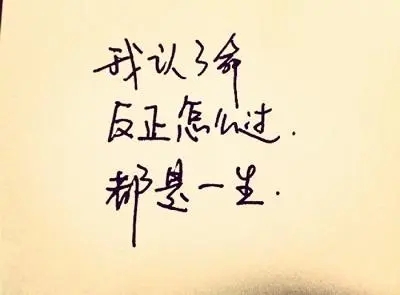 我认了命
反正怎么过.
都是一生.